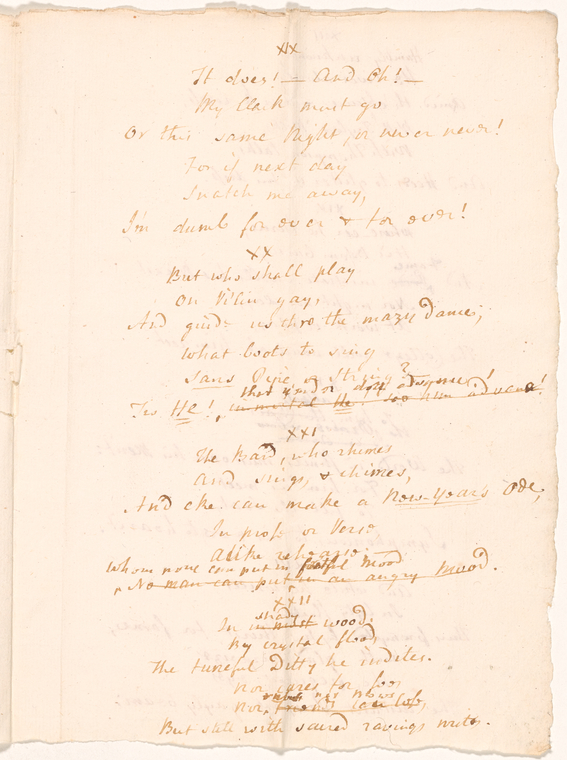 XIX
It does! — And Oh! —
My Clack must go
Or this same Night, or never never!
For if next day
Snatch me away,
I'm dumb for ever & for ever!
XX
But who shall play
On Vi'lin gay,
And guide us thro the mazy dance;
What boots to sing
Sans Pipe or String?
that kind or doth advance!
Tis He! immortal He! see him advance!
XXI
The Bard, who rhimes
And sings, & chimes,
And eke can make a New-Year's Ode,
In prose or Verse
Alike rehearse,
Whom none can put in fretful Mood
No man can put in an angry Mood.
XXII
shady
In inmost wood,
By crystal flood,
The tuneful Ditty he indites.
Nor cares for foe,
Nor, friends
But still with sacred ravings writes.